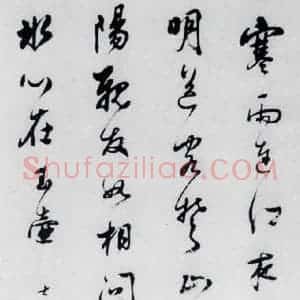 寒雨連江夜
明送客楚山
陽親友如相問
冰心在玉壺
Shufaziliao.com